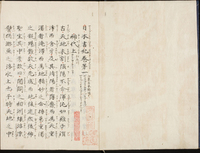 日本書紀卷第一
神代上
古天地未剖陰陽不分渾沌如雞子溟
涬而含牙及其清陽者薄靡而爲天重
濁者淹滯而爲地精妙之合搏易重濁
之凝竭難故天先成而地後定然後神
聖生其中焉故曰開闢之初洲壤浮漂
譬猶游魚之浮水上也于時天地之